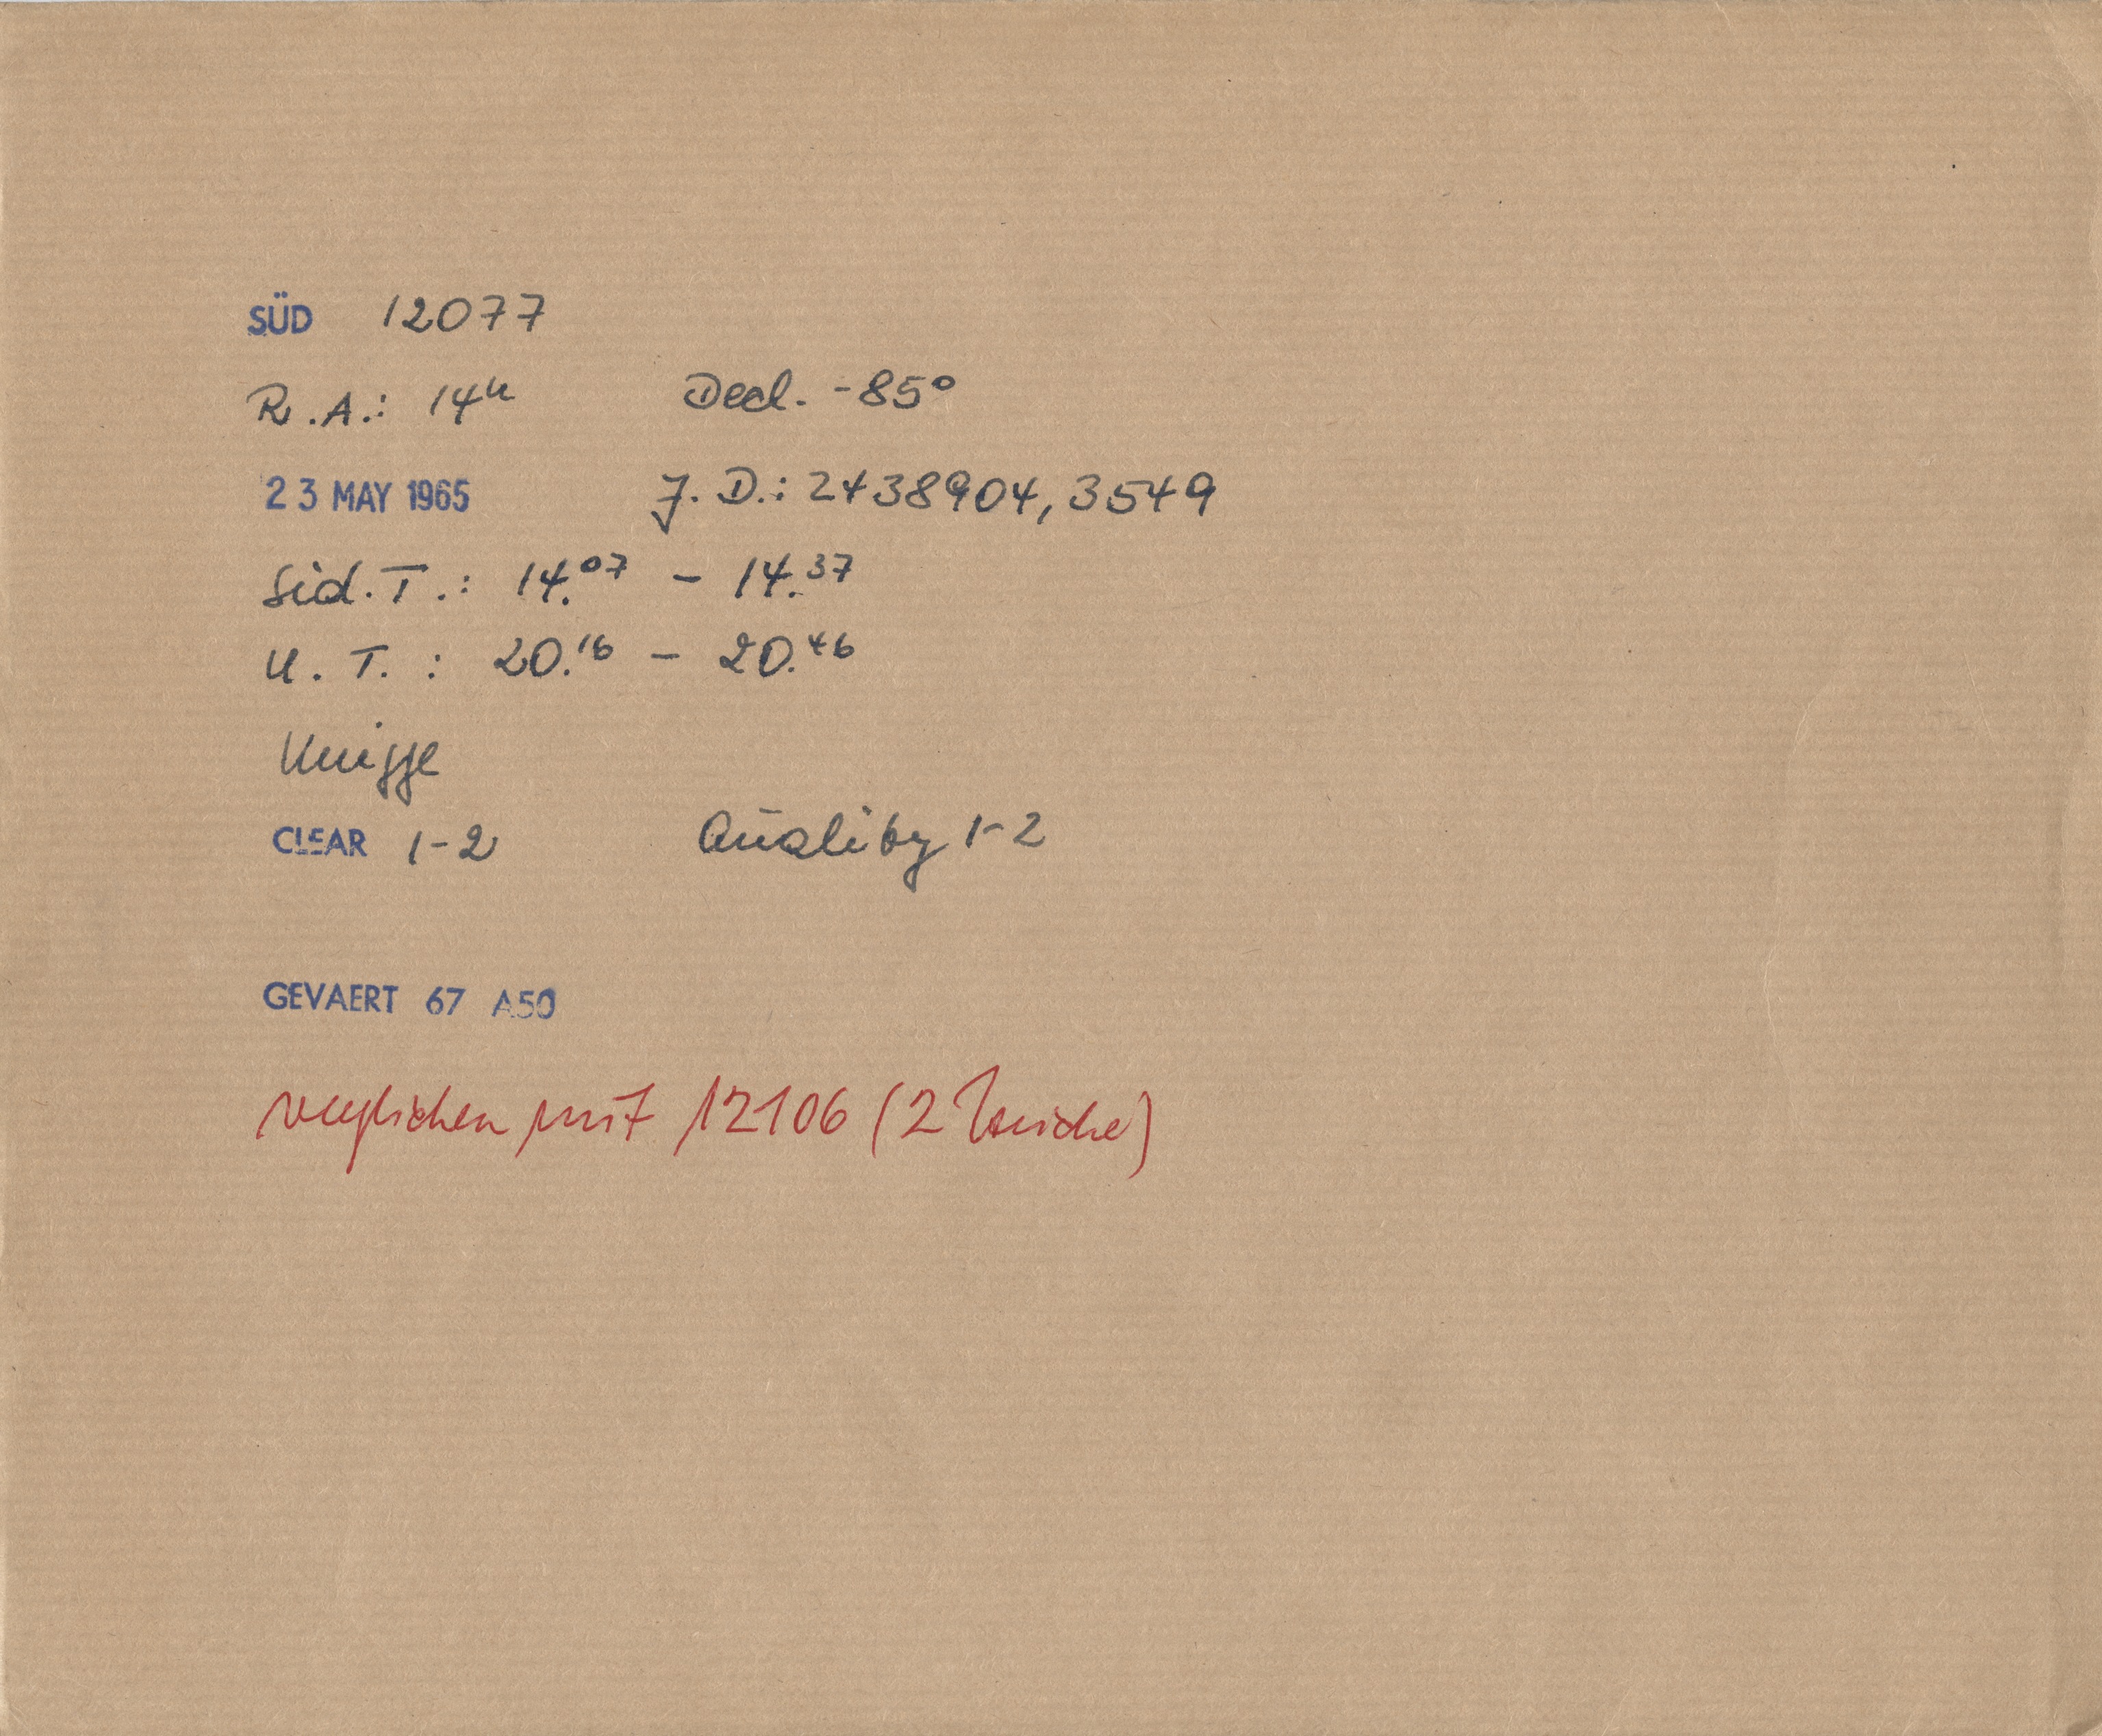 SÜD 12077
R.A.: 14ʰ Decl. -85°
23 MAY 1965 J.D.: 2438904,3549
Sid.T.: 14.⁰⁷ - 14.³⁷
U.T.: 20.¹⁶ - 20.⁴⁶
Knigge
CLEAR 1-2 Quality 1-2
GEVAERT 67 A50
verglichen mit 12106 (2